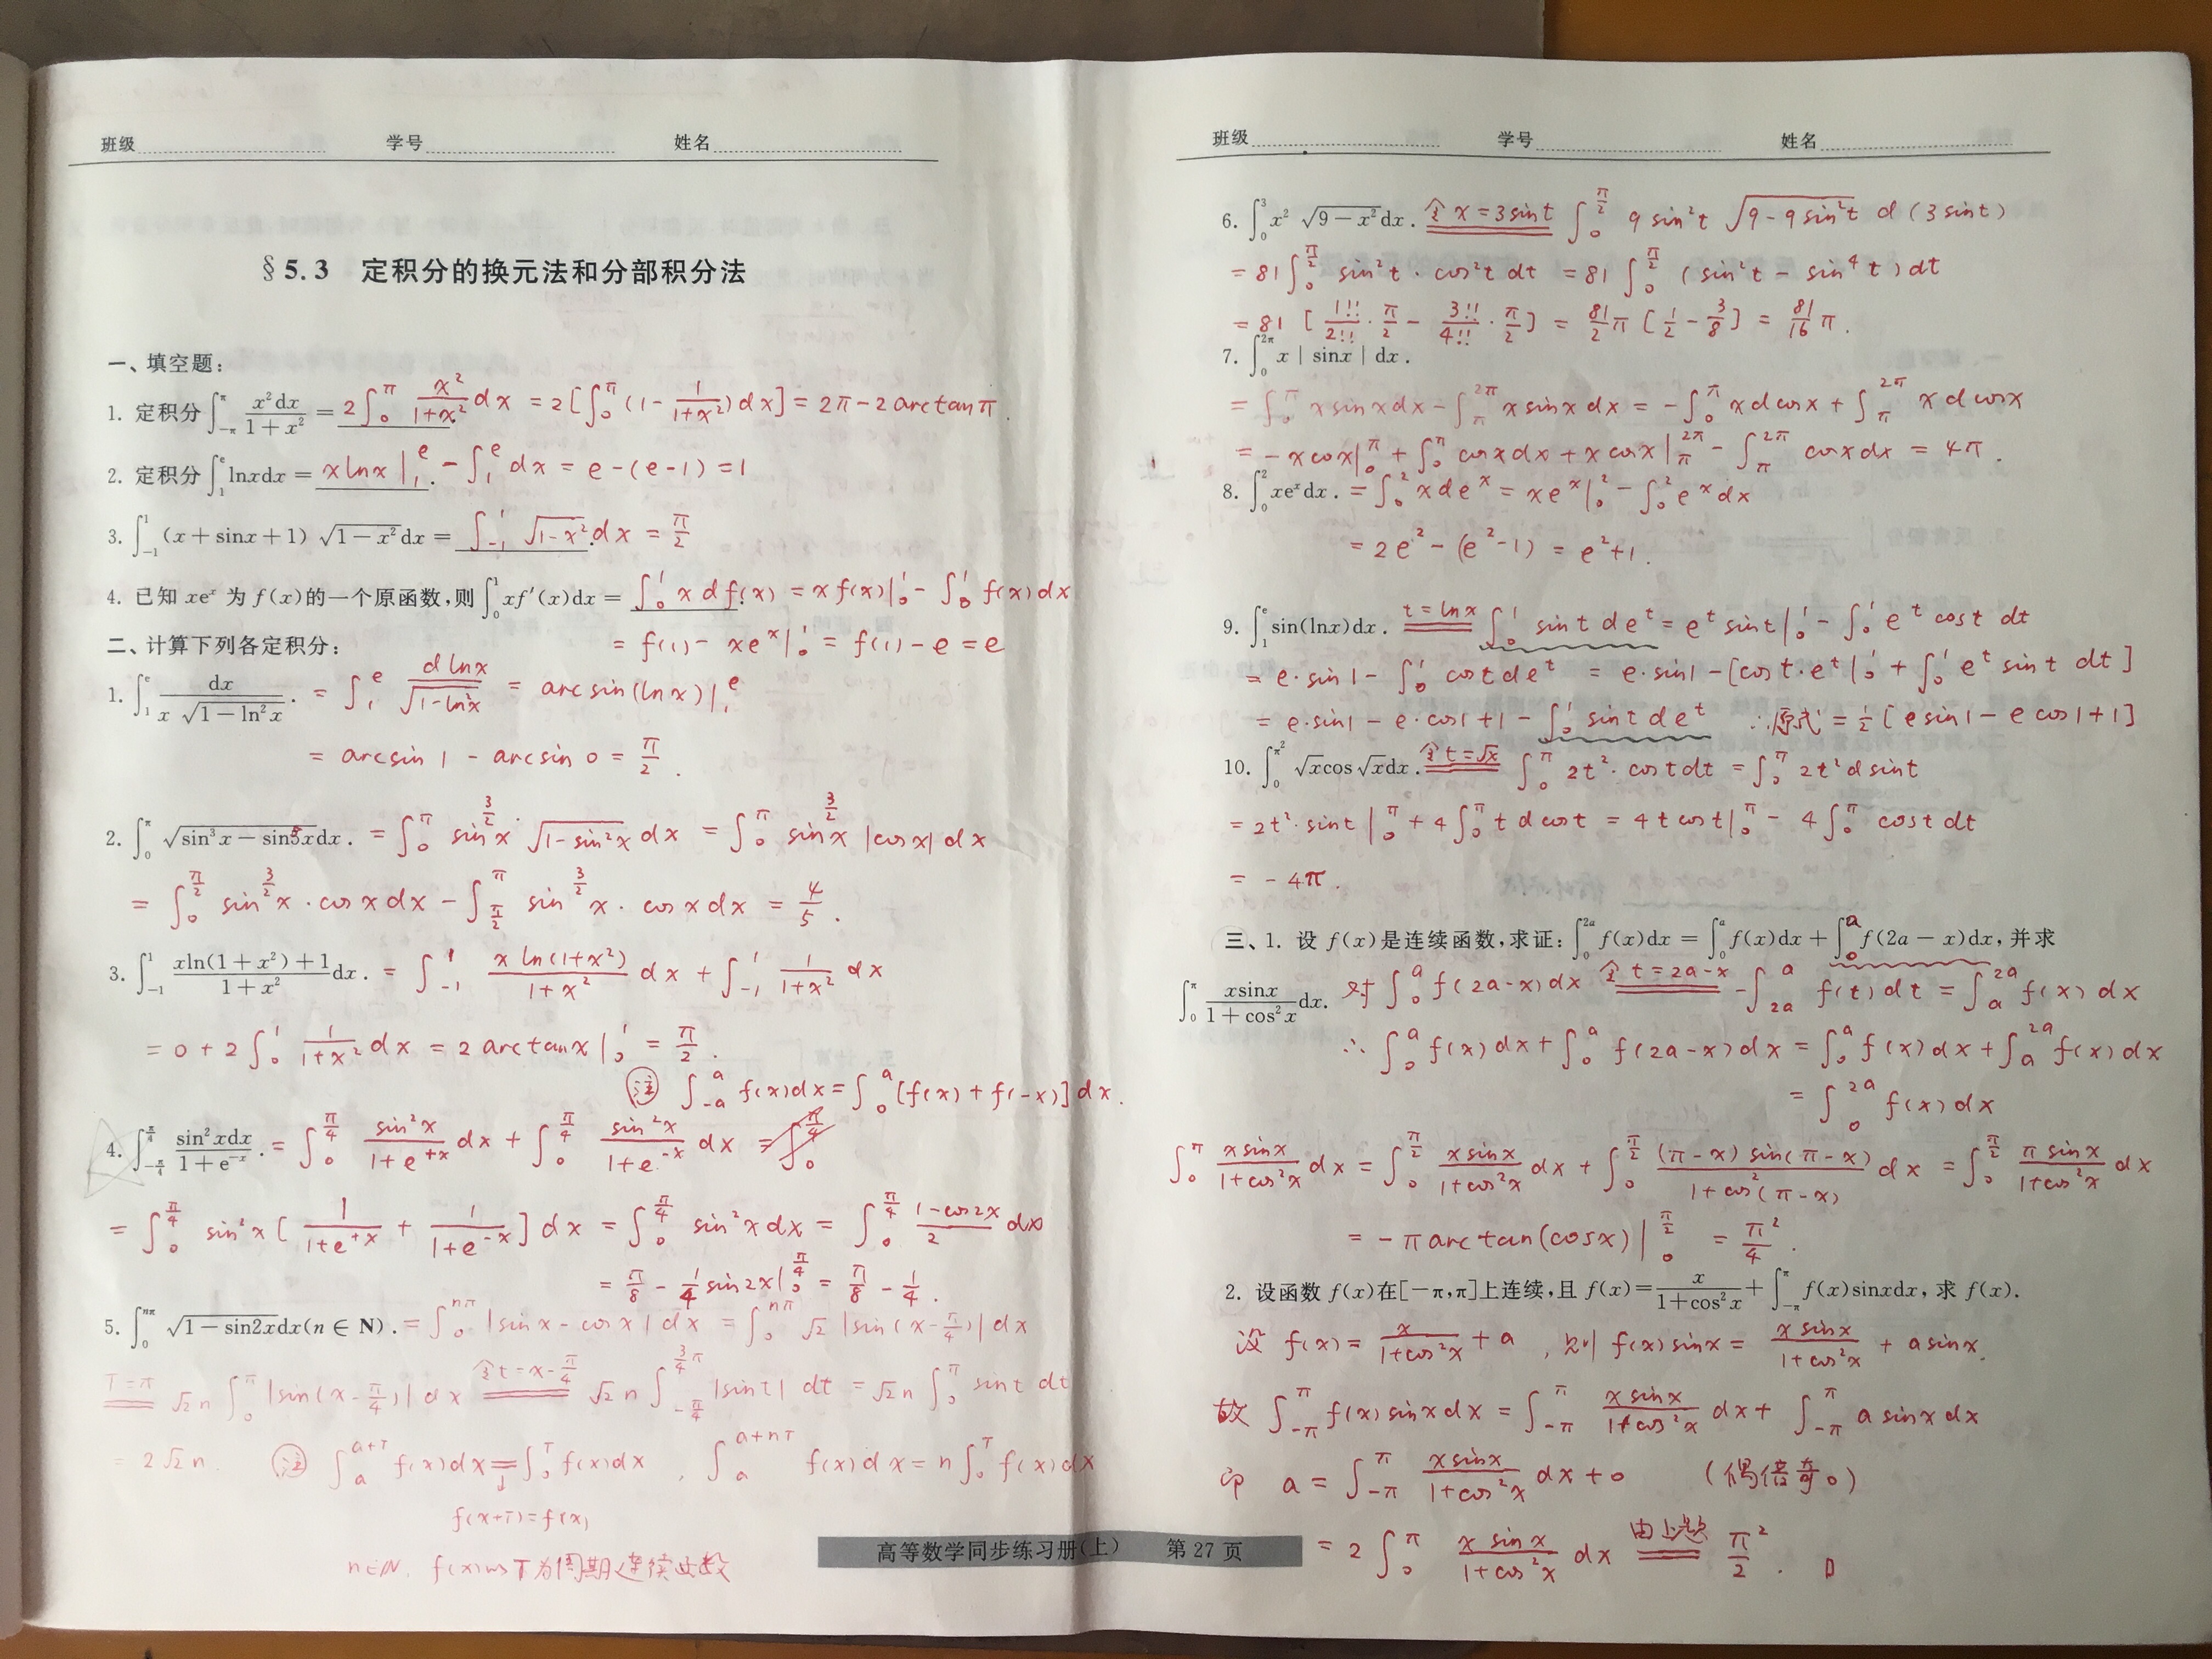 班级 学号 姓名
§5.3 定积分的换元法和分部积分法
一、填空题:
1. 定积分∫_{-π}^{π} x²dx/(1+x²) = 2∫_0^π x²/(1+x²) dx = 2[∫_0^π (1 - 1/(1+x²))dx] = 2π - 2arctanπ.
2. 定积分∫_1^e lnxdx = xlnx|_1^e - ∫_1^e dx = e-(e-1) = 1
3. ∫_{-1}^1 (x+sinx+1)√(1-x²)dx = ∫_{-1}^1 √(1-x²).dx = π/2
4. 已知 xe^x 为 f(x)的一个原函数,则∫_0^1 xf′(x)dx = ∫_0^1 x df(x) = xf(x)|_0^1 - ∫_0^1 f(x)dx
= f(1) - xe^x|_0^1 = f(1) - e = e
二、计算下列各定积分:
1. ∫_1^e dx/(x√(1-ln²x)). = ∫_1^e dlnx/√(1-ln²x) = arcsin(lnx)|_1^e
= arcsin1 - arcsin0 = π/2.
2. ∫_0^π √(sin³x - sin⁵x)dx. = ∫_0^π sin^{3/2}x·√(1-sin²x) dx = ∫_0^π sin^{3/2}x |cosx| dx
= ∫_0^{π/2} sin^{3/2}x·cosxdx - ∫_{π/2}^π sin^{3/2}x·cosxdx = 4/5.
3. ∫_{-1}^1 (xln(1+x²)+1)/(1+x²) dx. = ∫_{-1}^1 xln(1+x²)/(1+x²) dx + ∫_{-1}^1 1/(1+x²) dx
= 0+2∫_0^1 1/(1+x²) dx = 2arctanx|_0^1 = π/2.
注 ∫_{-a}^a f(x)dx = ∫_0^a [f(x)+f(-x)]dx.
4. ∫_{-π/4}^{π/4} sin²xdx/(1+e^{-x}). = ∫_0^{π/4} sin²x/(1+e^{+x}) dx + ∫_0^{π/4} sin²x/(1+e^{-x}) dx = ∫_0^{π/4}
= ∫_0^{π/4} sin²x[1/(1+e^{+x}) + 1/(1+e^{-x})]dx = ∫_0^{π/4} sin²xdx = ∫_0^{π/4} (1-cos2x)/2 dx
= π/8 - 1/4 sin2x|_0^{π/4} = π/8 - 1/4.
5. ∫_0^{nπ} √(1-sin2x)dx(n∈N). = ∫_0^{nπ} |sinx-cosx|dx = ∫_0^{nπ} √2|sin(x-π/4)|dx
T=π √2n∫_0^π |sin(x-π/4)|dx 令t=x-π/4 √2n∫_{-π/4}^{3/4π} |sint|dt = √2n∫_0^π sintdt
= 2√2n. 注 ∫_a^{a+T} f(x)dx = ∫_0^T f(x)dx, ∫_a^{a+nT} f(x)dx = n∫_0^T f(x)dx
f(x+T)=f(x)
n∈N, f(x)以T为周期连续函数
班级 学号 姓名
6. ∫_0^3 x²√(9-x²)dx. 令x=3sint ∫_0^{π/2} 9sin²t√(9-9sin²t) d(3sint)
= 81∫_0^{π/2} sin²t·cos²tdt = 81∫_0^{π/2} (sin²t - sin⁴t)dt
= 81[1!!/2!!·π/2 - 3!!/4!!·π/2] = 81/2 π[1/2 - 3/8] = 81/16 π.
7. ∫_0^{2π} x|sinx|dx.
= ∫_0^π xsinxdx - ∫_π^{2π} xsinxdx = -∫_0^π xdcosx + ∫_π^{2π} xdcosx
= -xcosx|_0^π + ∫_0^π cosxdx + xcosx|_π^{2π} - ∫_π^{2π} cosxdx = 4π.
8. ∫_0^2 xe^xdx. = ∫_0^2 xde^x = xe^x|_0^2 - ∫_0^2 e^xdx
= 2e² - (e²-1) = e²+1.
9. ∫_1^e sin(lnx)dx. t=lnx ∫_0^1 sintde^t = e^tsint|_0^1 - ∫_0^1 e^tcostdt
= e·sin1 - ∫_0^1 costde^t = e·sin1 - [cost·e^t|_0^1 + ∫_0^1 e^tsintdt]
= e·sin1 - e·cos1+1 - ∫_0^1 sintde^t ∴原式 = 1/2[esin1 - ecos1+1]
10. ∫_0^{π²} √xcos√xdx. 令t=√x ∫_0^π 2t²·costdt = ∫_0^π 2t²dsint
= 2t²·sint|_0^π + 4∫_0^π tdcost = 4tcost|_0^π - 4∫_0^π costdt
= -4π.
三、1. 设 f(x)是连续函数,求证:∫_0^{2a} f(x)dx = ∫_0^a f(x)dx + ∫_0^a f(2a-x)dx,并求
∫_0^π xsinx/(1+cos²x) dx. 对∫_0^a f(2a-x)dx 令t=2a-x -∫_{2a}^a f(t)dt = ∫_a^{2a} f(x)dx
∴ ∫_0^a f(x)dx + ∫_0^a f(2a-x)dx = ∫_0^a f(x)dx + ∫_a^{2a} f(x)dx
= ∫_0^{2a} f(x)dx
∫_0^π xsinx/(1+cos²x) dx = ∫_0^{π/2} xsinx/(1+cos²x) dx + ∫_0^{π/2} (π-x)sin(π-x)/(1+cos²(π-x)) dx = ∫_0^{π/2} πsinx/(1+cos²x) dx
= -πarctan(cosx)|_0^{π/2} = π²/4.
2. 设函数 f(x)在[-π,π]上连续,且 f(x)= x/(1+cos²x) + ∫_{-π}^π f(x)sinxdx,求 f(x).
设 f(x) = x/(1+cos²x) + a, 则 f(x)sinx = xsinx/(1+cos²x) + asinx.
故 ∫_{-π}^π f(x)sinxdx = ∫_{-π}^π xsinx/(1+cos²x) dx + ∫_{-π}^π asinxdx
即 a = ∫_{-π}^π xsinx/(1+cos²x) dx+0 (偶倍奇0)
= 2∫_0^π xsinx/(1+cos²x) dx 由上题 π²/2.
高等数学同步练习册(上) 第27页